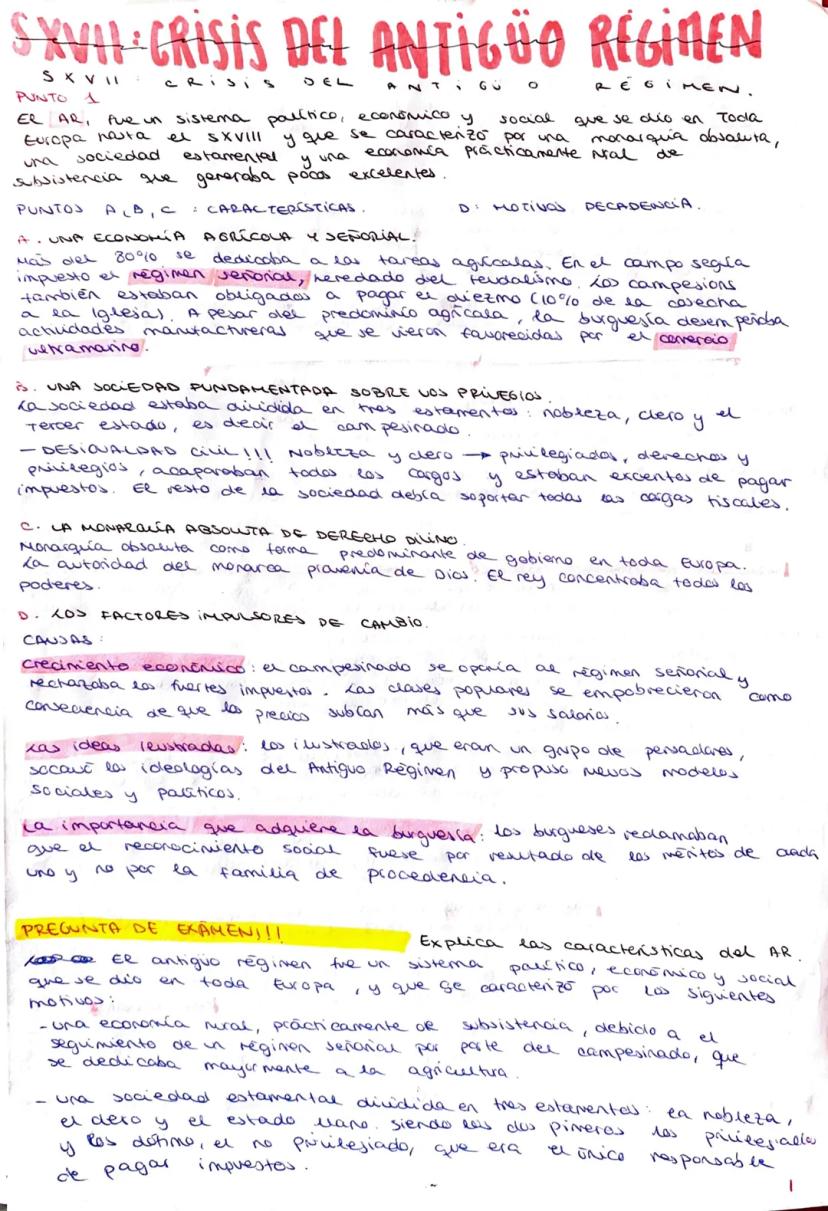 SXVII: CRISIS DEL ANTIGÜO RÉGIMEN
SXVII: CRISIS DEL ANTIGÜO RÉGIMEN.
PUNTO 1
El AR, fue un sistema político, económico y social que se dio en toda
Europa hasta el SXVIII y que se caracterizó por una monarquía absoluta,
una sociedad estamental y una economía prácticamente rural de
subsistencia que generaba pocos excelentes.
PUNTOS A, B, C : CARACTERÍSTICAS. D: MOTIVOS DECADENCIA.
A. UNA ECONOMÍA AGRÍCOLA Y SEÑORIAL.
Más del 80% se dedicaba a las tareas agrícolas. En el campo seguía
impuesto el régimen señorial, heredado del feudalismo. Los campesions
también estaban obligados a pagar el diezmo (10% de la cosecha
a la Iglesia). A pesar del predominio agrícola, la burguesía desempeñaba
actividades manufactureras que se vieron favorecidas por el comercio
ultramarino.
B. UNA SOCIEDAD FUNDAMENTADA SOBRE LOS PRIVEGIOS.
La sociedad estaba dividida en tres estamentos: nobleza, clero y el
Tercer estado, es decir el campesinado.
— DESIGUALDAD CIVIL!!! Nobleza y clero → privilegiados, derechos y
privilegios, acaparaban todos los cargos y estaban excentos de pagar
impuestos. El resto de la sociedad debía soportar todas las cargas fiscales.
C. LA MONARQUÍA ABSOLUTA DE DERECHO DIVINO
Monarquía absoluta como forma predominante de gobierno en toda Europa.
La autoridad del monarca provenía de Dios. El rey concentraba todos los
poderes.
D. LOS FACTORES IMPULSORES DE CAMBIO.
CAUSAS:
Crecimiento económico: el campesinado se oponía al régimen señorial y
rechazaba los fuertes impuestos. Las clases populares se empobrecieron como
consecuencia de que los precios subían más que sus salarios.
Las ideas ilustradas: los ilustrados, que eran un grupo de pensadores,
socavó las ideologías del Antiguo Régimen y propuso nuevos modelos
sociales y políticos.
La importancia que adquiere la burguesía: los burgueses reclamaban
que el reconocimiento social fuese por resultado de los méritos de cada
uno y no por la familia de procedencia.
PREGUNTA DE EXÁMEN!!! Explica las características del AR.
El antigüo régimen fue un sistema político, económico y social
que se dio en toda Europa, y que se caracterizó por los siguientes
motivos:
- una economía rural, prácticamente de subsistencia, debido a el
seguimiento de un régimen señorial por parte del campesinado, que
se dedicaba mayormente a la agricultura.
- una sociedad estamental dividida en tres estamentos: la nobleza,
el clero y el estado llano. siendo los dos pimeros los privilegiados
y los último, el no privilegiado, que era el único responsable
de pagar impuestos.
1